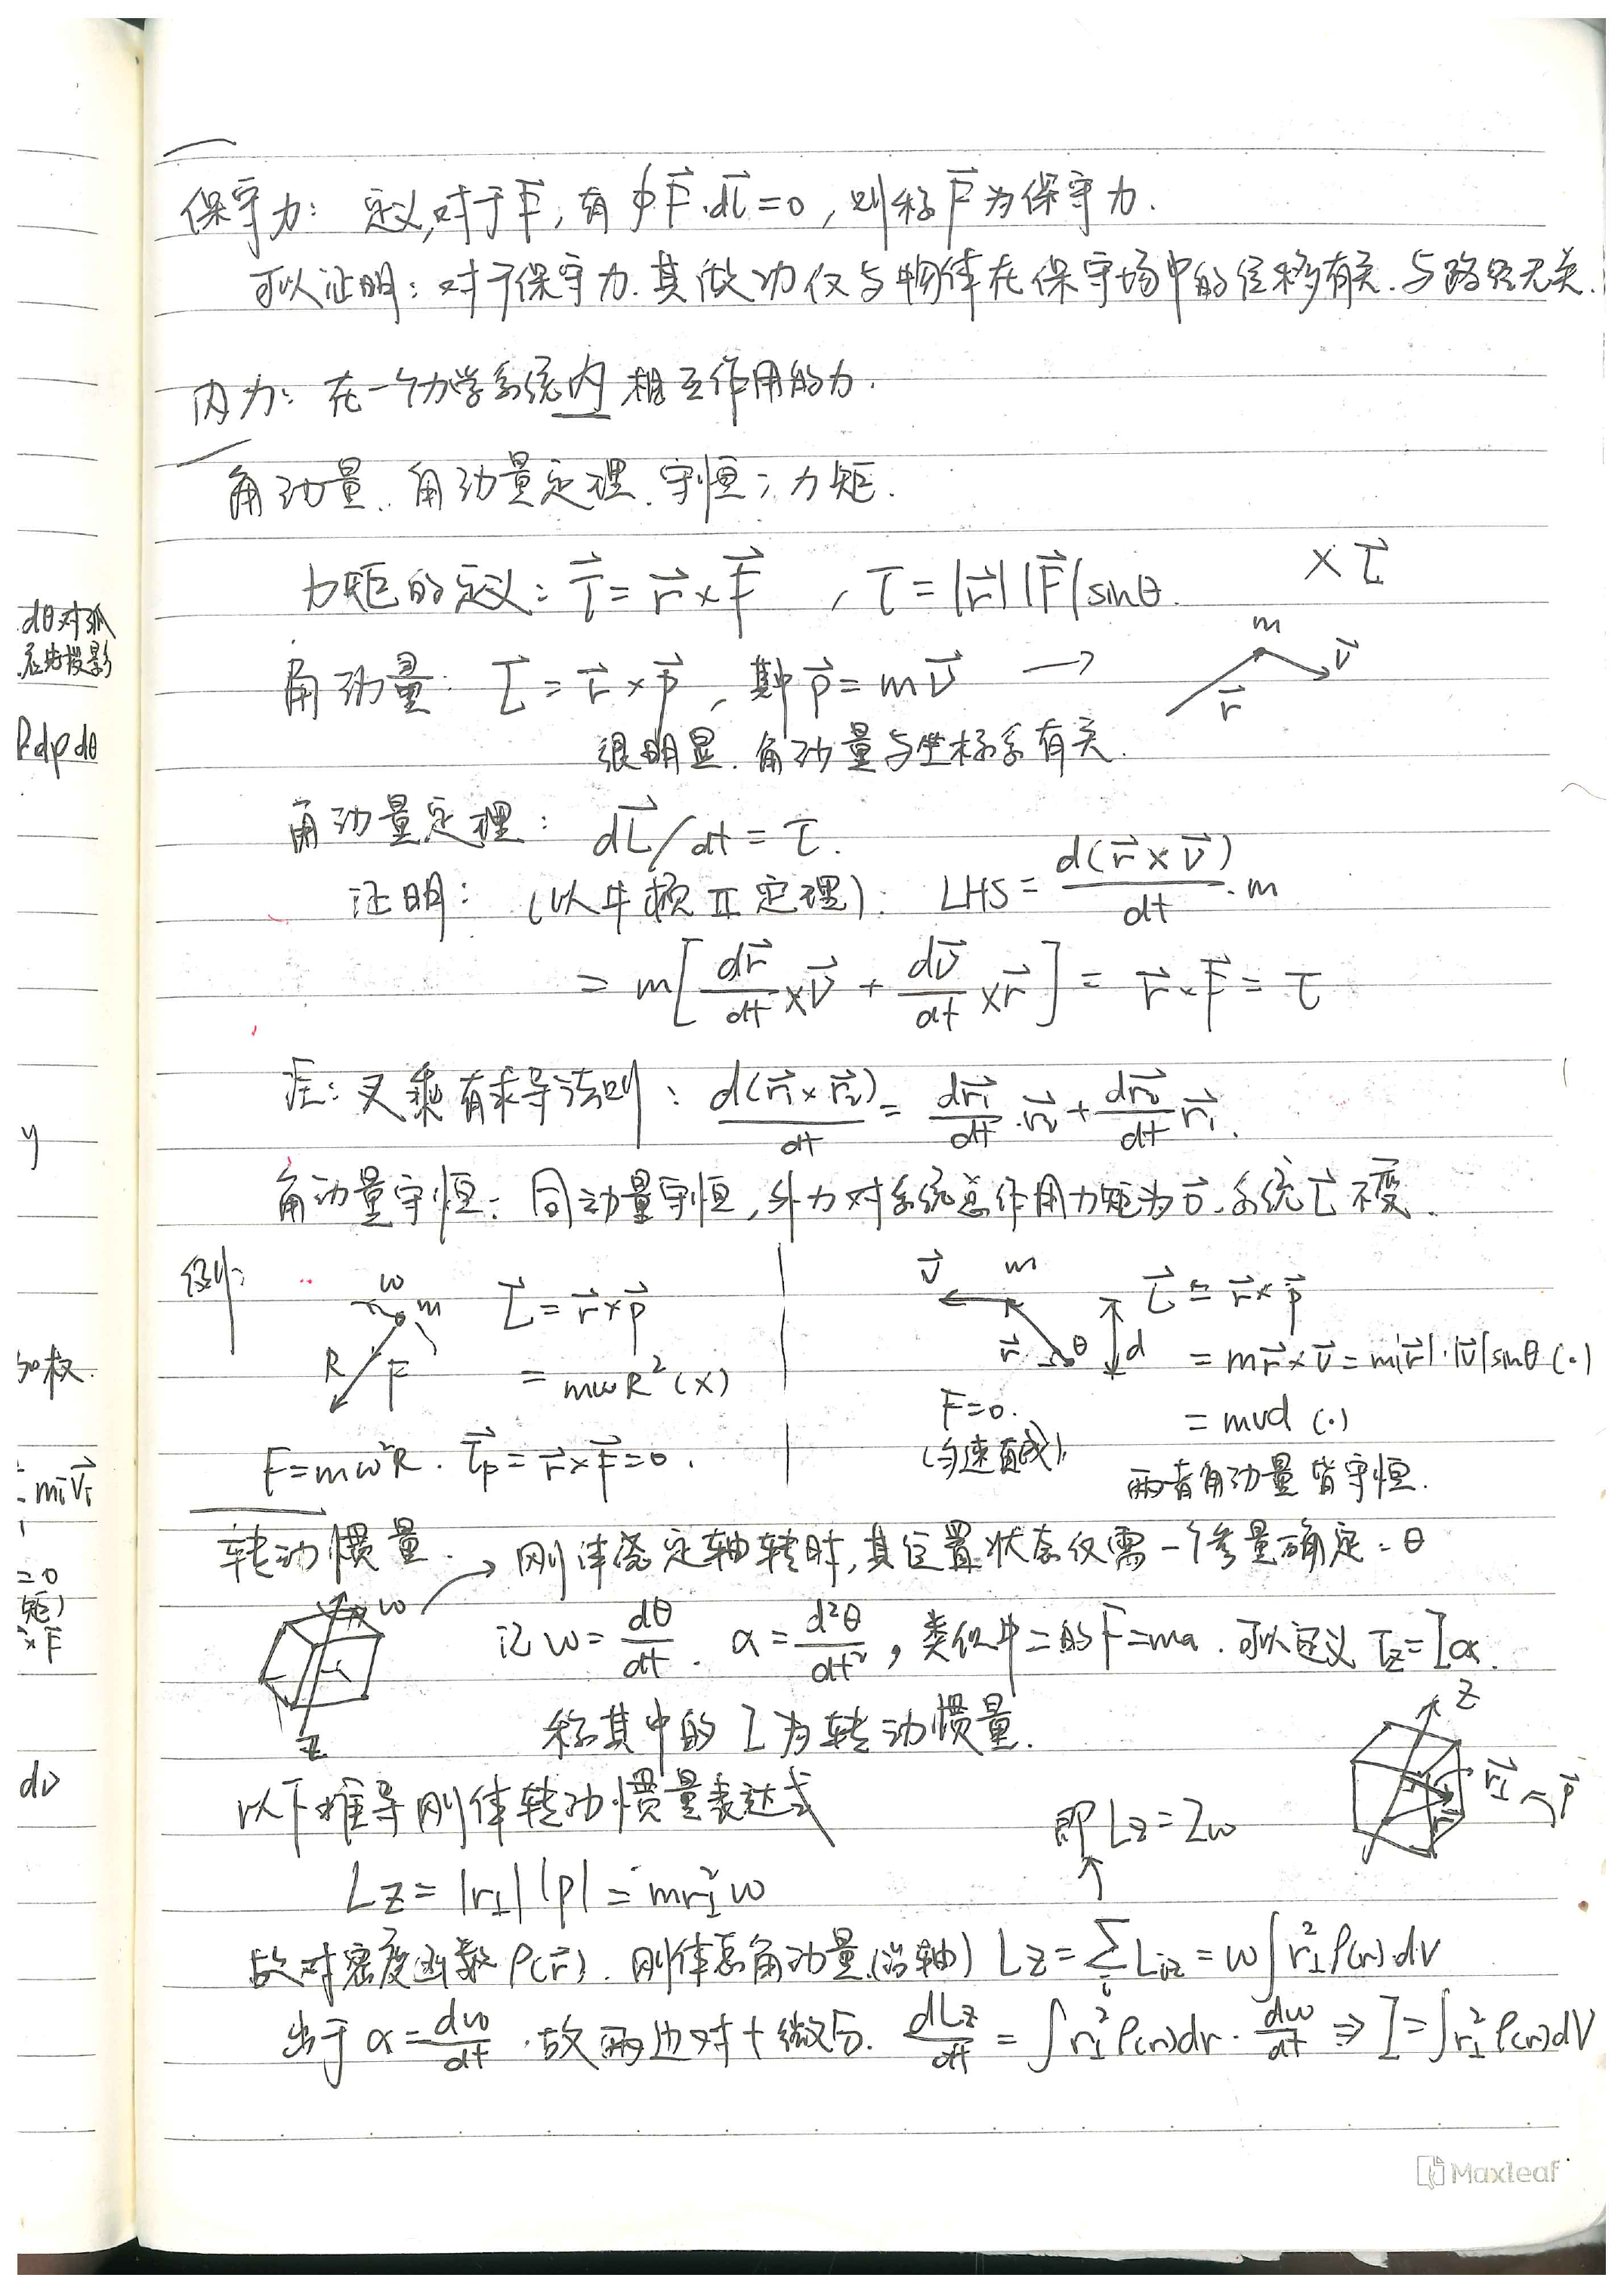 保守力: 定义,对于F⃗, 有 ∮F⃗·dl⃗=0, 则称F⃗为保守力.
可以证明: 对于保守力. 其做功仅与物体在保守场中的位移有关. 与路径无关.
内力: 在一个力学系统内相互作用的力.
角动量. 角动量定理. 守恒; 力矩.
力矩的定义: τ⃗ = r⃗×F⃗ , τ = |r⃗||F⃗|sinθ.
× L⃗
角动量: L⃗ = r⃗×p⃗, 其中p⃗ = mv⃗ →
m
v⃗
r⃗
很明显. 角动量与坐标系有关.
角动量定理: dL⃗/dt = τ.
证明: (以牛顿II定理): LHS = d(r⃗×v⃗)/dt · m
= m[dr⃗/dt × v⃗ + dv⃗/dt × r⃗] = r⃗×F⃗ = τ
注: 叉乘有求导法则: d(r⃗₁×r⃗₂)/dt = dr⃗₁/dt · r⃗₂ + dr⃗₂/dt r⃗₁.
角动量守恒: 同动量守恒, 外力对系统总作用力矩为0⃗, 系统L⃗不变.
例:
ω
m
R
F
L⃗ = r⃗×p⃗
= mωR² (×)
F=mω²R. τ⃗p = r⃗×F⃗=0.
v⃗
m
r⃗
θ
d
L⃗ = r⃗×p⃗
= mr⃗×v⃗ = m|r⃗|·|v⃗|sinθ (·)
F=0.
(匀速直线)
= mvd (·)
两者角动量皆守恒.
转动惯量. → 刚体绕定轴转时, 其位置状态仅需一个参量确定: θ
ω
z
记 ω = dθ/dt. α = d²θ/dt², 类似牛二的F=ma. 可以定义 τz = Iα.
称其中的 I 为转动惯量.
z
r⃗⊥
p⃗
r⃗
以下推导刚体转动惯量表达式
即 Lz = Iω
↑
Lz = |r⊥||p| = mr⊥²ω
故对密度函数 ρ(r⃗). 刚体总角动量(沿轴) Lz = ∑ᵢ Liz = ω∫r⊥²ρ(r)dV
由于 α = dω/dt. 故两边对 t 微分. dLz/dt = ∫r⊥²ρ(r)dr · dω/dt ⇒ I = ∫r⊥²ρ(r)dV
Maxleaf
dθ对弧
投影
dρdθ
y
权.
mᵢv⃗ᵢ
=0
矩)
×F⃗
dv